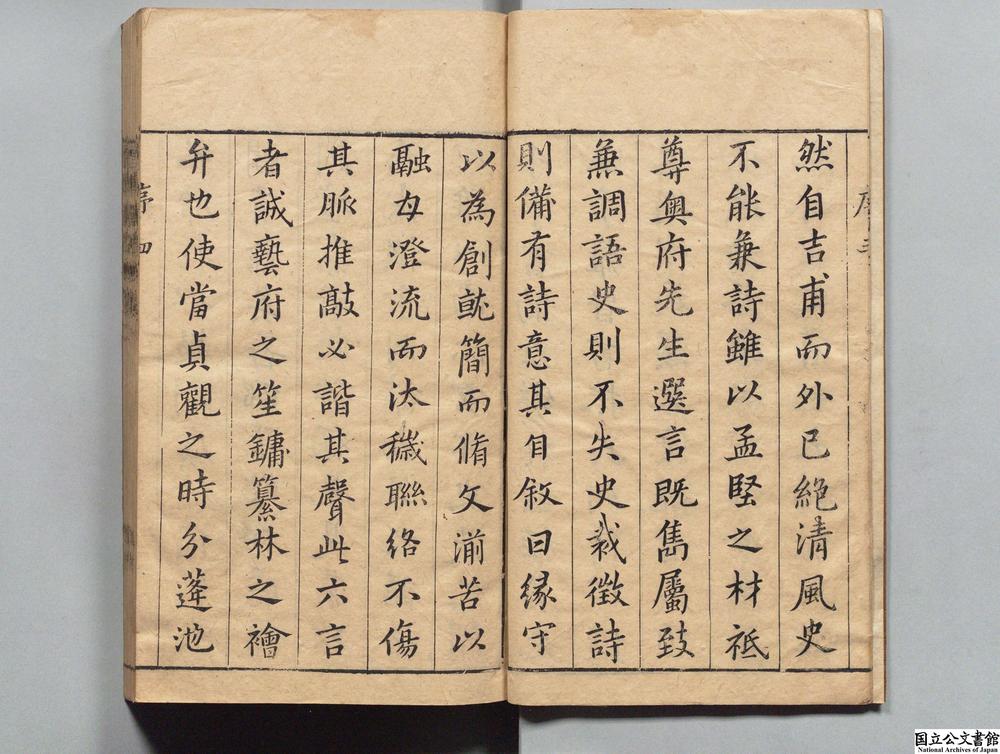 然自吉甫而外已絶清風史
不能兼詩雖以孟堅之材祗
尊奥府先生選言既雋屬致
無調語史則不失史裁徵詩
則備有詩意其自敘曰緣守
以為創就簡而脩文湔苦以
融毋澄流而汰穢聯絡不傷
其脈推敲必諧其聲此六言
者誠藝府之笙鏞纂林之襘
弁也使當貞觀之時分蓬池
序四
国立公文書館
National Archives of Japan